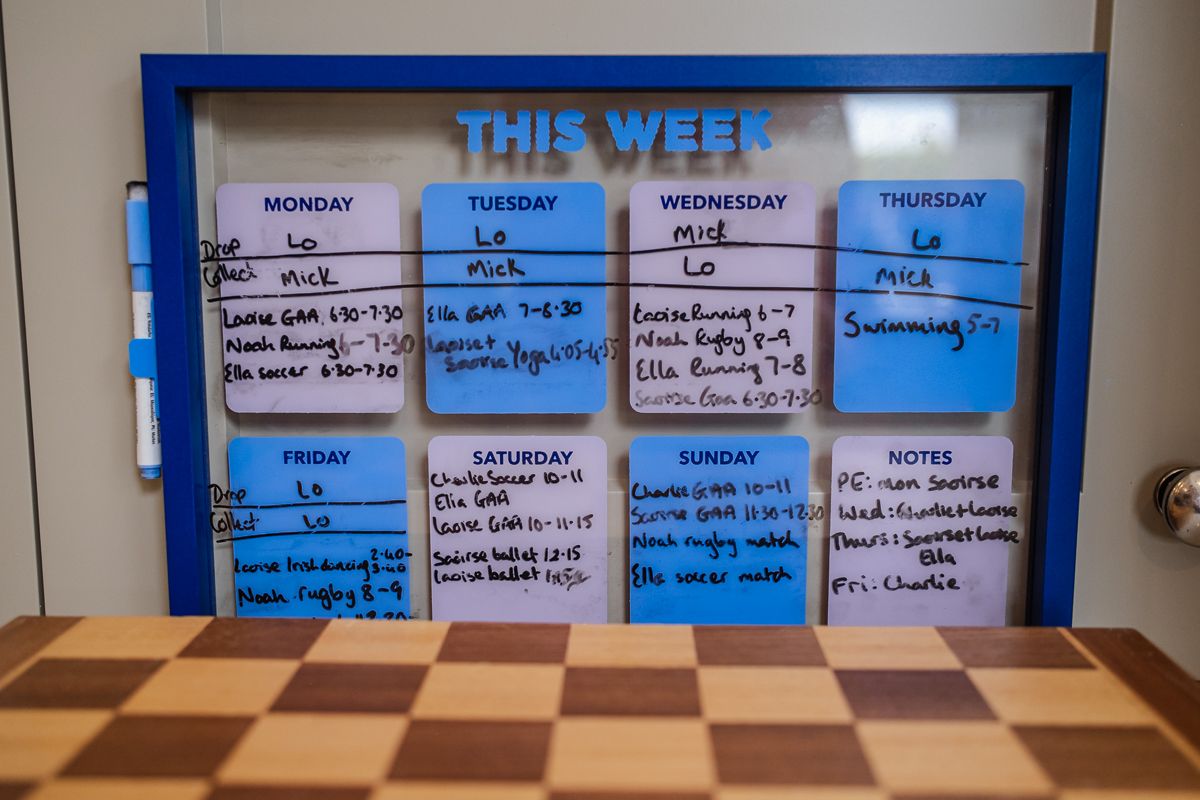 THIS WEEK
MONDAY
Drop Lo
Collect Mick
Laoise GAA 6.30-7.30
Noah Running 6-7.30
Ella soccer 6.30-7.30
TUESDAY
Lo
Mick
Ella GAA 7-8.30
Laoise+
Saoirse Yoga 4.05-4.55
WEDNESDAY
Mick
Lo
Laoise Running 6-7
Noah Rugby 8-9
Ella Running 7-8
Saoirse Gaa 6.30-7.30
THURSDAY
Lo
Mick
Swimming 5-7
FRIDAY
Drop Lo
Collect Lo
Laoise Irish dancing 2.40-
3.40
Noah rugby 8-9
SATURDAY
Charlie Soccer 10-11
Ella GAA
Laoise GAA 10-11.15
Saoirse ballet 12.15
Laoise ballet
SUNDAY
Charlie GAA 10-11
Saoirse GAA 11.30-12.30
Noah rugby match
Ella soccer match
NOTES
PE: Mon Saoirse
Wed: Charlie+Laoise
Thurs: Saoirse+Laoise
Ella
Fri: Charlie